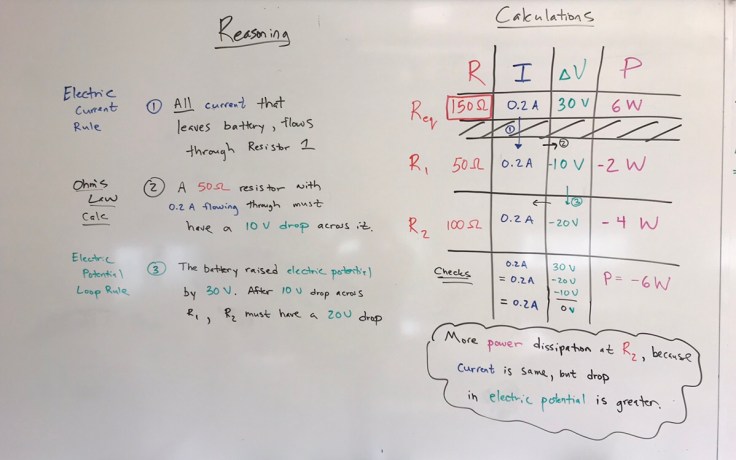 Reasoning
Electric
Current
Rule
① All current that
leaves battery, flows
through Resistor 1
Ohm's
Law
Calc
② A 50Ω resistor with
0.2 A flowing through must
have a 10 V drop across it.
Electric
Potential
Loop Rule
③ The battery raised electric potential
by 30 V. After 10 V drop across
R₁, R₂ must have a 20V drop
Calculations
R I ΔV P
Req 150Ω 0.2 A 30 V 6 W
① ②
R₁ 50Ω 0.2 A -10 V -2 W
③
R₂ 100Ω 0.2 A -20V - 4 W
Checks
0.2 A
= 0.2 A
= 0.2A
30 V
-20V
-10V
0V
P = -6W
More power dissipation at R₂, because
current is same, but drop
in electric potential is greater.